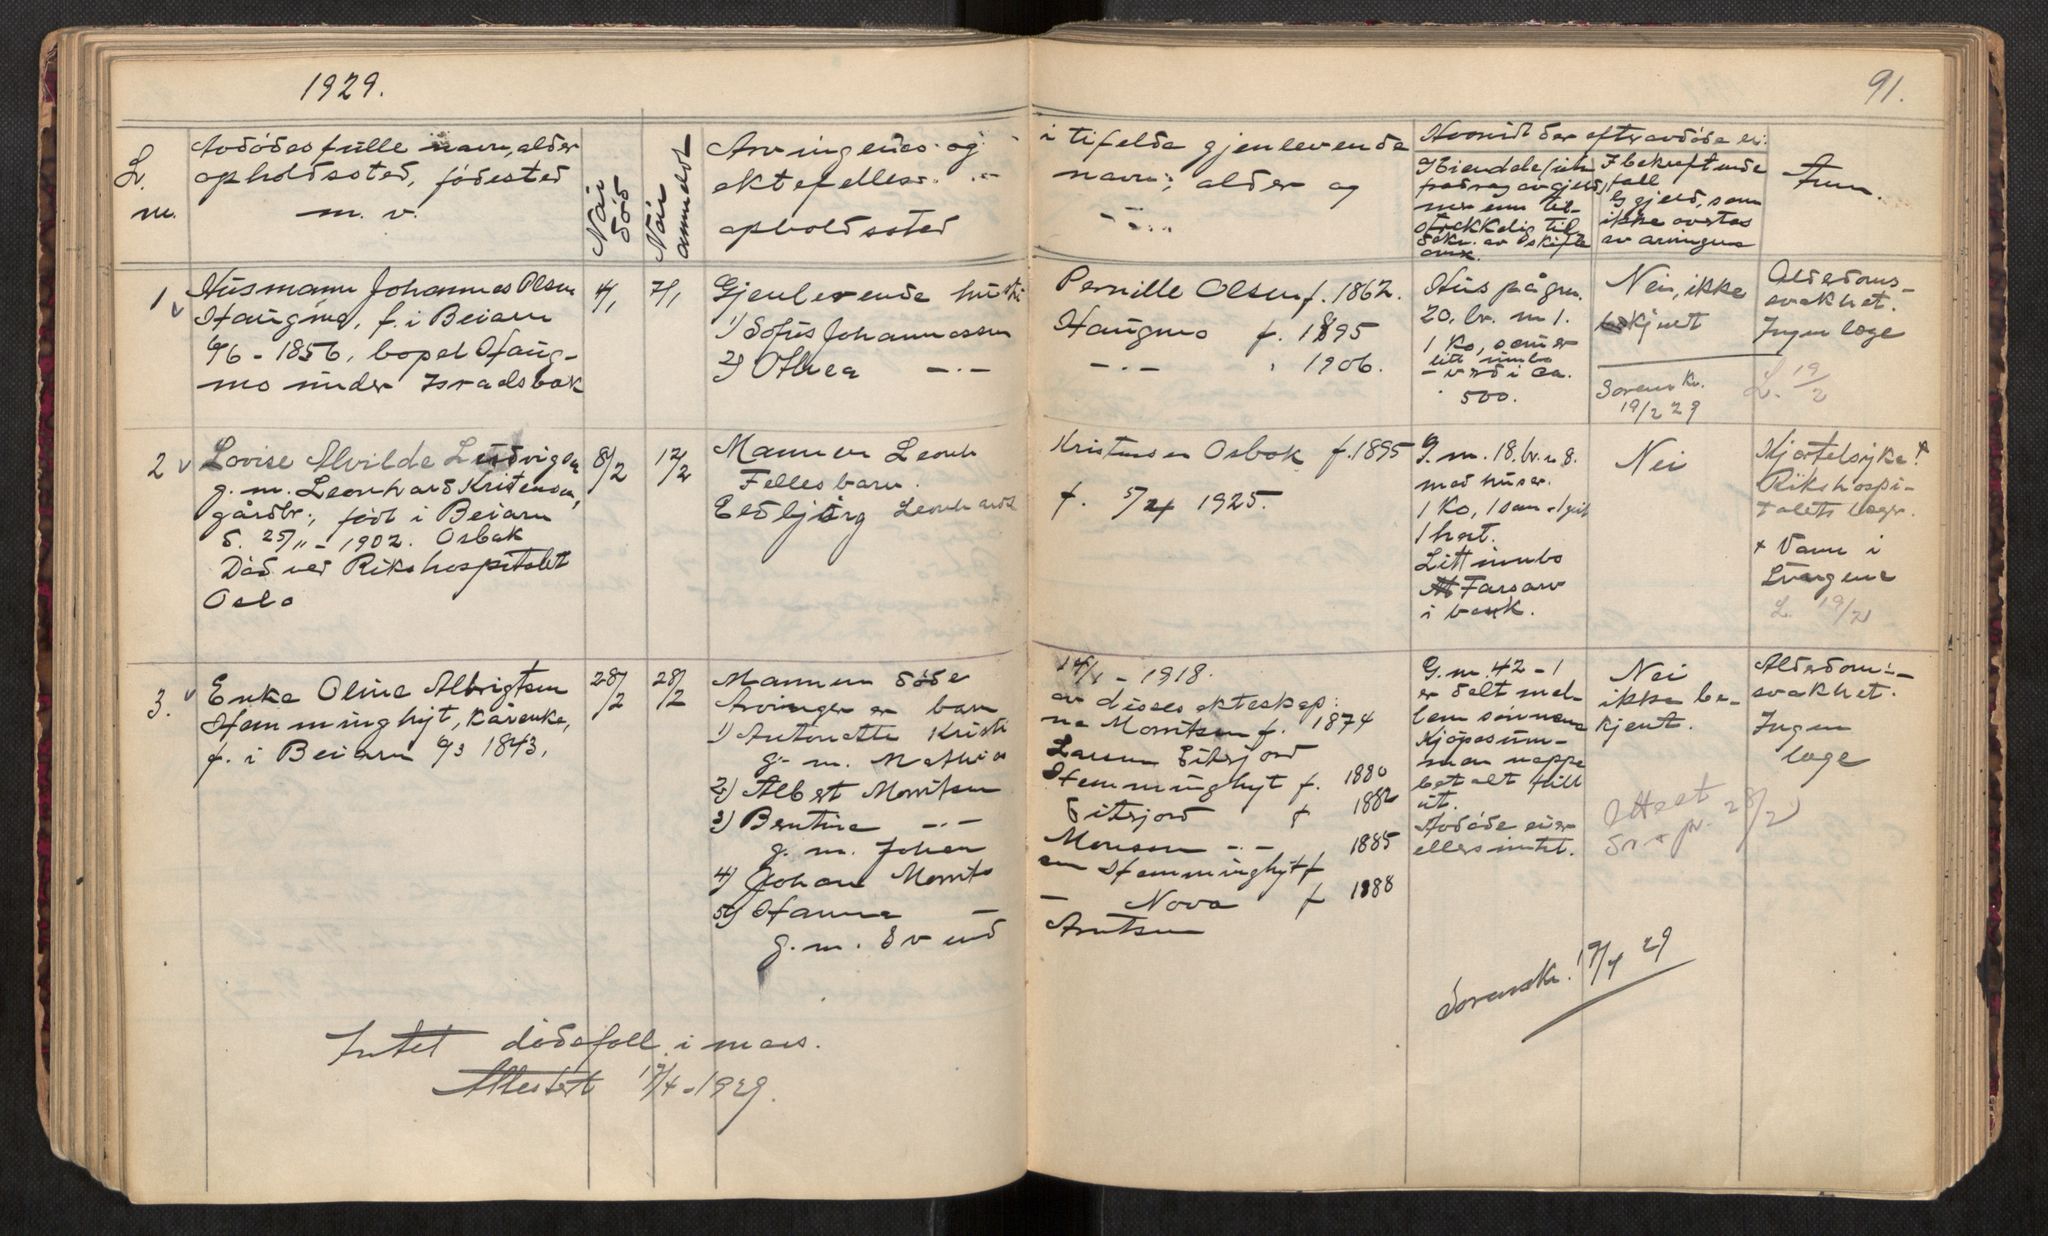 1929.
91.
L.
m.
Avdødes fulle navn, alder
opholdssted, fødested
m. v.
Når
død
Når
anmeldt
Arvingenes og
ektefelles
opholdssted
i tifelde gjenlevende
navn, alder og
Hvorvidt der efter avdøde er:
I bekreftende
fall
gjeld, som
ikke overtas
av arvingene
Anm.
1
Husmann Johannes Olsen
Haugmo, f. i Beiarn
6/6 - 1856, bopel Haug-
mo under Israelsbak
4/1
7/1
Gjenlevende hustru
1) Sofus Johannessen
2) Othea -"-
Pernille Olsen f. 1862.
Haugmo f. 1895
-"- " 1906.
Hus på gm.
20, br. m 1.
1 Ko, som er
litt innbo
- verdi ca.
500.
Nei, ikke
kjent
Sorenskr.
19/2 29
Alderdoms-
svakhet.
Ingen læge
L. 19/2
2
Lovise Alvilde Ludvigsen
g. m. Leonhard Kristensen,
gårdbr., født i Beiarn
d. 25/11 - 1902. Osbak
Død ved Rikshospitalet
Oslo
8/2
12/2
Mannen Leonh
Felles barn.
Edbjørg Leonhards
Kristensen Osbak f. 1895
f. 5/4 1925.
G. m. 18. br. n 8.
med huser.
1 Ko, 1 sau + 1 geit
1 hest.
Litt innbo
Farsarv
i bank.
Nei
Hjertesyke +
Rikshospi-
talets læge.
+ Vann i
Lungene
L. 19/2
3.
Enke Oline Albrigtsen
Hemminghyt, kårenke,
f. i Beiarn 9/3 1843,
28/2
28/2
Mannen døde
Arvinger er barn
1) Antonette Kristi
g. m. Mathias
2) Albert Moritsen
3) Berntine -"-
g. m. Johan
4) Johan Morits
5) Hanna -
g. m. Svend
14/1 - 1918.
av disses ekteskap:
na Moritsen f. 1874
Larsen Eitrjord
Hemminghyt f. 1880
Eitrjord f 1882
Monsen -"- 1885
en Hemminghyt f
- Nova f 1888
Arntsen
G. m. 42 - 1
er delt mel-
lem sønnene
Kjøpesum-
men neppe
betalt fullt
ut.
Avdøde eier
ellers intet.
Nei
ikke be-
kjent.
Attest
28/2
Alderdoms-
svakhet.
Ingen
læge
Sorenskr. 17/4 29
Intet dødsfall i mars.
Attestert 17/4 - 1929.